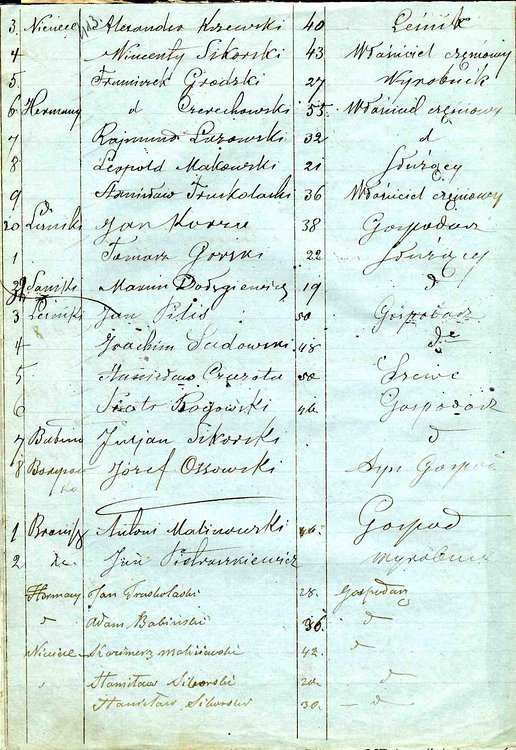 3 Niecice 113 Alexander Krzewski 40 Leśnik
4 Wincenty Sikorski 43 Właściciel częściowy
5 Franciszek Grodzki 27 Wyrobnik
6 Hermany d Czerechowski 55 Właściciel częściowy
7 Rajmund Lazowski 32 d
8 Leopold Makowski 21 Służący
9 Stanisław Truskolaski 36 Właściciel częściowy
20 Jan 38 Gospodarz
1 Tomasz Gorski 22 Służący
Saniki 19 d
3 Leśniki Jan Pilis 50 Gospodarz
4 Joachim Sadowski 48 de
5 Stanisław Czeczota 50 Szewc
6 Piotr Rogowski 46 Gospodarz
7 Julian Sikorski d
8 Józef Ossowski Syn Gospod
1 Antoni Malinowski Gospod
2 de Jan Pietraszkiewicz Wyrobnik
Hermany Jan Truskolaski 28. Gospodarz
d Adam Babinski 36. d
Niecice Kazimierz Maliszewski 42. d
Stanisław Sikorski 20. d
Stanisław Sikorski 30. d